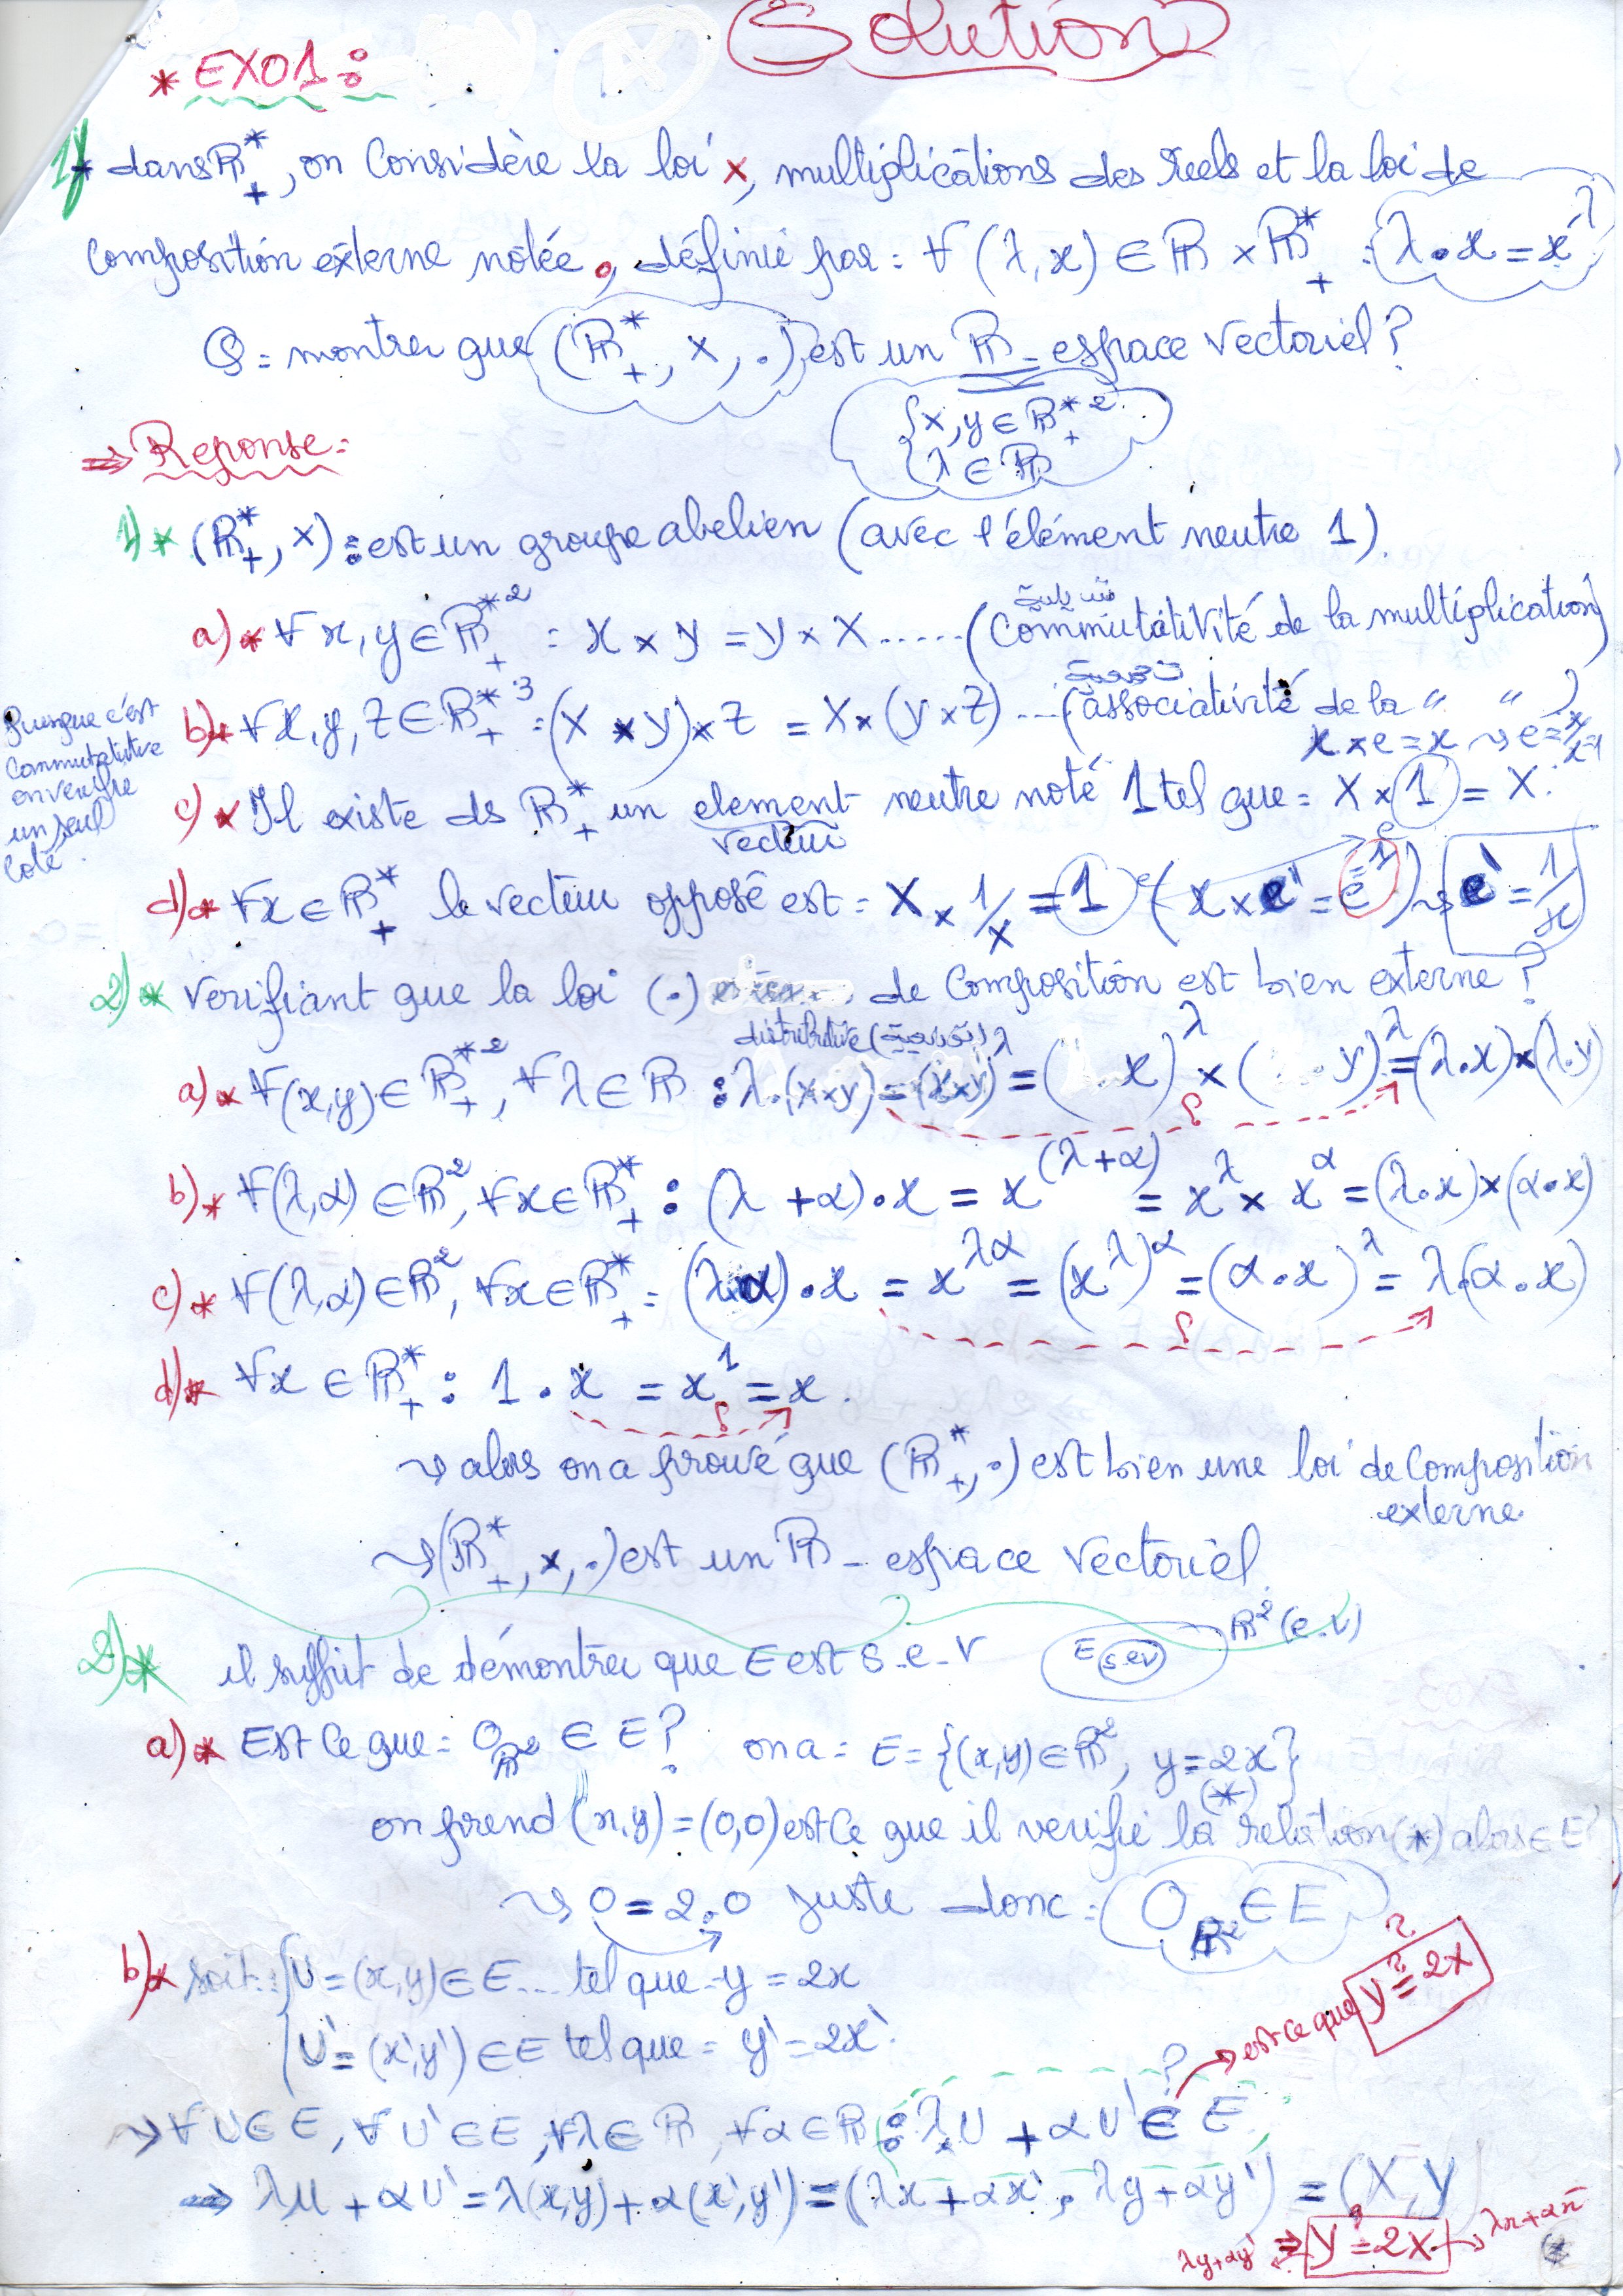 Solution
* EXO1:
1) * dans ℝ*₊, on Considère la loi ×, multiplications des réels et la loi de
composition externe notée ., définie par : ∀ (λ,x) ∈ ℝ × ℝ*₊ : λ . x = x^λ
Q = montrer que (ℝ*₊, ×, .) est un ℝ - espace Vectoriel ?
{x, y ∈ ℝ*₊²
{λ ∈ ℝ
⇒ Reponse:
1) * (ℝ*₊, ×) : est un groupe abelien (avec l'élément neutre 1).
a) * ∀ x, y ∈ ℝ*₊² : x × y = y × x ..... (Commutativité de la multiplication)
b) * ∀ x, y, z ∈ ℝ*₊³ : (x × y) × z = x × (y × z) ... (associativité de la " " )
puisque c'est
commutative
on vérifie
un seul
coté.
x × e = x ⇝ e = x/x = 1
c) * Il existe ds ℝ*₊ un element neutre noté 1 tel que : x × 1 = x.
vecteur
d) * ∀x ∈ ℝ*₊ le vecteur opposé est : x × 1/x = 1 e (x × e' = e 1) ⇝ e' = 1/x
2) * Verifiant que la loi (.) de Composition est bien externe ?
distributive (توزيعية)
a) * ∀(x,y) ∈ ℝ*₊², ∀λ ∈ ℝ : λ.(x×y) = (x×y)^λ = (x)^λ × (y)^λ = (λ.x) × (λ.y)
b) * ∀(λ,α) ∈ ℝ², ∀x ∈ ℝ*₊ : (λ + α) . x = x^(λ+α) = x^λ × x^α = (λ.x) × (α.x)
c) * ∀(λ,α) ∈ ℝ², ∀x ∈ ℝ*₊ : (λ.α) . x = x^λα = (x^λ)^α = (α . x)^λ = λ.(α . x)
d) * ∀x ∈ ℝ*₊ : 1 . x = x^1 = x.
⇝ alors on a prouvé que (ℝ*₊, .) est bien une loi de Composition
externe.
⇝ (ℝ*₊, ×, .) est un ℝ - espace Vectoriel.
2) * il suffit de démontrer que E est s.e.v
E s.ev
ℝ² (e.v)
a) * Est ce que : 0_ℝ² ∈ E ? on a : E = {(x,y) ∈ ℝ², y = 2x}
(*)
on prend (x,y) = (0,0) est ce que il verifie la relation (*) alors ∈ E ?
⇝ 0 = 2.0 juste donc : 0_ℝ² ∈ E
b) * soit : {U = (x,y) ∈ E ... tel que y = 2x
{U' = (x',y') ∈ E tel que = y' = 2x'.
→ est ce que y = 2x ?
⇝ ∀U ∈ E, ∀U' ∈ E, ∀λ ∈ ℝ, ∀α ∈ ℝ : λ.U + αU' ∈ E ?
⇒ λU + αU' = λ(x,y) + α(x',y') = (λx + αx', λy + αy') = (X, Y
λy+αy' ⇒ Y = 2X → λx+αx'